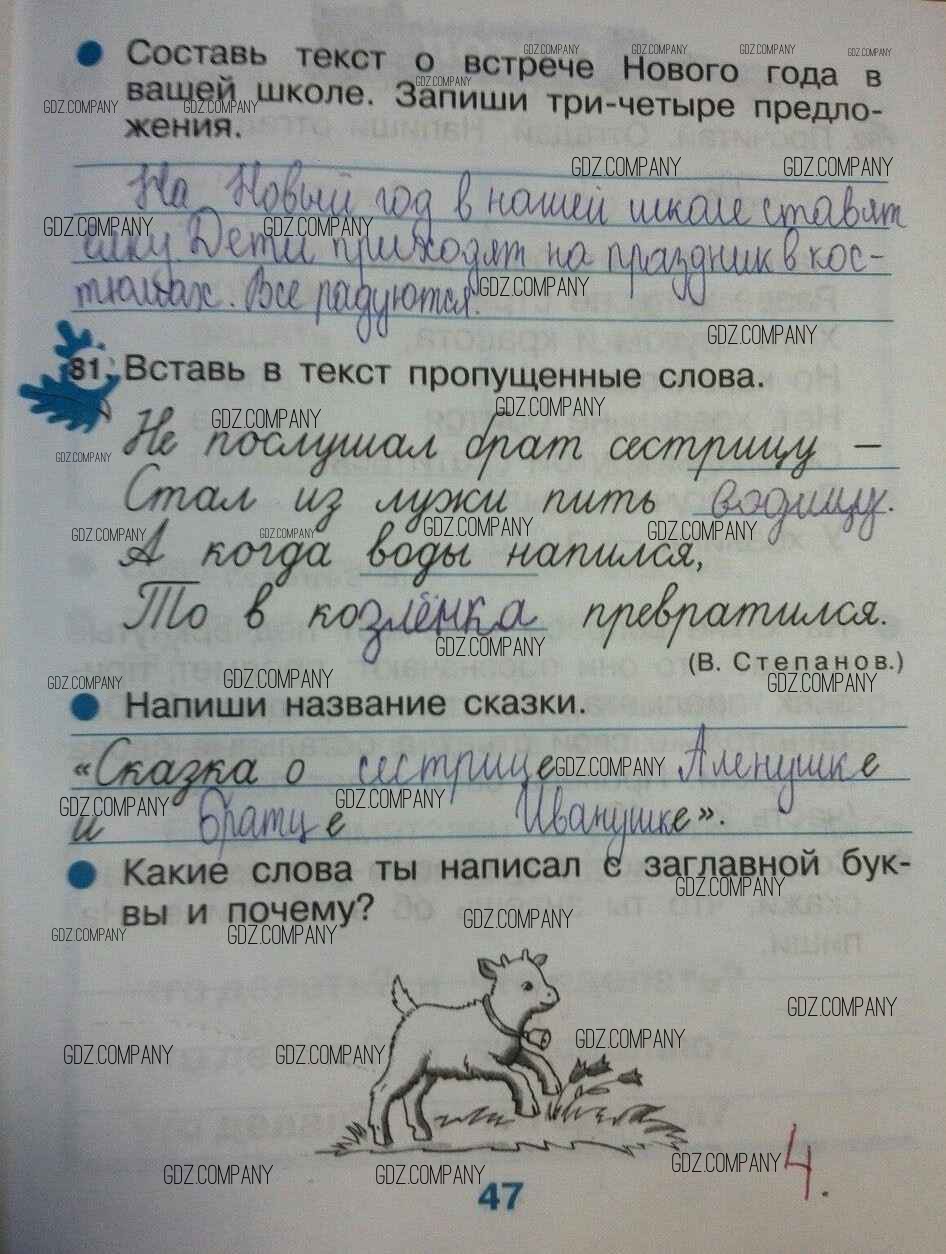 Составь текст о встрече Нового года в
вашей школе. Запиши три-четыре предло-
жения.
На Новый год в нашей школе ставят
ёлку Дети приходят на праздник в кос-
тюмах. Все радуются.
81. Вставь в текст пропущенные слова.
Не послушал брат сестрицу –
Стал из лужи пить водицу.
А когда воды напился,
То в козлёнка превратился.
(В. Степанов.)
Напиши название сказки.
«Сказка о сестрице Аленушке
и братце Иванушке».
Какие слова ты написал с заглавной бук-
вы и почему?
47
4.
GDZ.COMPANY